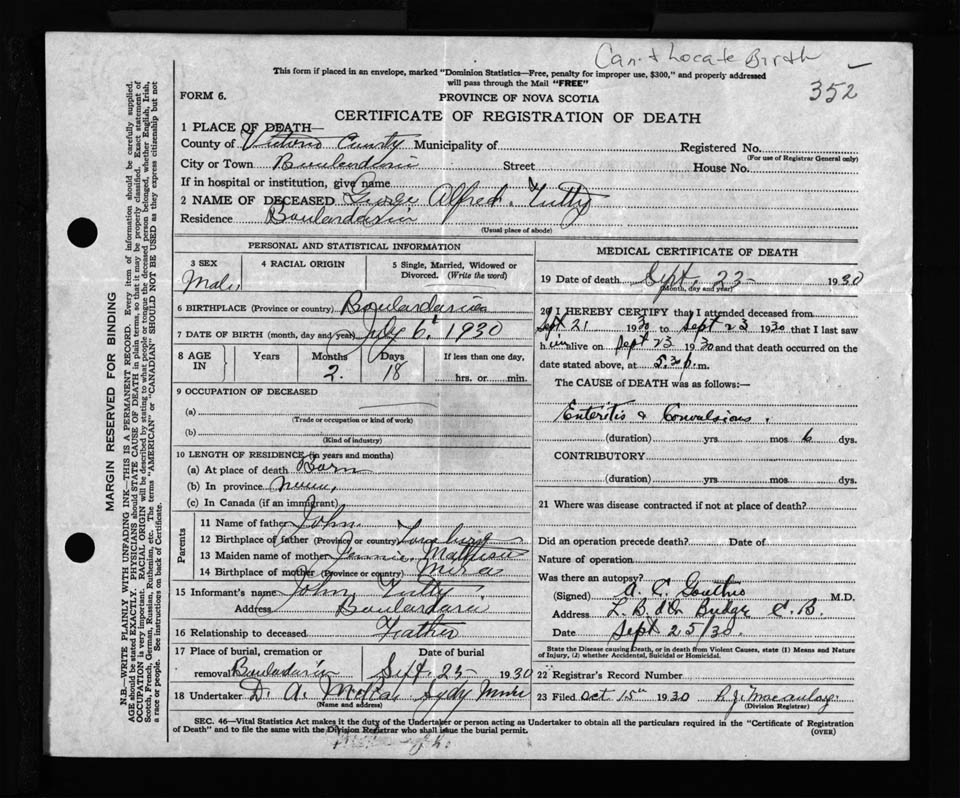 Can't Locate Birth
352
This form if placed in an envelope, marked "Dominion Statistics—Free, penalty for improper use, $300," and properly addressed
will pass through the Mail "FREE"
FORM 6.
PROVINCE OF NOVA SCOTIA
CERTIFICATE OF REGISTRATION OF DEATH
1 PLACE OF DEATH—
County of Victoria County Municipality of Registered No.
(For use of Registrar General only)
City or Town Boulardarie Street House No.
If in hospital or institution, give name
2 NAME OF DECEASED George Alfred Tutty
Residence Boulardarie
(Usual place of abode)
PERSONAL AND STATISTICAL INFORMATION
3 SEX
Male
4 RACIAL ORIGIN
5 Single, Married, Widowed or
Divorced. (Write the word)
6 BIRTHPLACE (Province or country) Boulardarie
7 DATE OF BIRTH (month, day and year) July 6, 1930
8 AGE IN
Years
Months
2.
Days
18
If less than one day,
hrs. or min.
9 OCCUPATION OF DECEASED
(a)
(Trade or occupation or kind of work)
(b)
(Kind of industry)
10 LENGTH OF RESIDENCE (in years and months)
(a) At place of death Born
(b) In province
(c) In Canada (if an immigrant)
Parents
11 Name of father John
12 Birthplace of father (Province or country) Louisburg
13 Maiden name of mother Jennie
14 Birthplace of mother (Province or country) Mira
15 Informant's name John Tutty
Address Boulardarie
16 Relationship to deceased Father
17 Place of burial, cremation or
removal Boulardarie
Date of burial
Sept. 25 1930
18 Undertaker D. A. Sydy Mines
(Name and address)
MEDICAL CERTIFICATE OF DEATH
19 Date of death Sept. 23 1930
(Month, day and year)
20 I HEREBY CERTIFY that I attended deceased from
Sept 21 1930 to Sept 23 1930 that I last saw
him alive on Sept 23 1930 and that death occurred on the
date stated above, at 5.30 p.m.
The CAUSE of DEATH was as follows:—
Enteritis & Convulsions.
(duration) yrs mos 6 dys.
CONTRIBUTORY
(duration) yrs mos dys.
21 Where was disease contracted if not at place of death?
Did an operation precede death? Date of
Nature of operation
Was there an autopsy?
(Signed) A. C. M.D.
Address Bridge C.B.
Date Sept 25/30.
State the Disease causing Death, or in death from Violent Causes, state (1) Means and Nature
of Injury, (2) whether Accidental, Suicidal or Homicidal.
22 Registrar's Record Number
23 Filed Oct 15th 1930 Macaulay
(Division Registrar)
SEC. 46—Vital Statistics Act makes it the duty of the Undertaker or person acting as Undertaker to obtain all the particulars required in the "Certificate of Registration
of Death" and to file the same with the Division Registrar who shall issue the burial permit.
(OVER)
MARGIN RESERVED FOR BINDING
N.B.—WRITE PLAINLY WITH UNFADING INK—THIS IS A PERMANENT RECORD. Every item of information should be carefully supplied.
AGE should be stated EXACTLY. PHYSICIANS should STATE CAUSE OF DEATH in plain terms, so that it may be properly classified. Exact statement of
OCCUPATION is very important. RACIAL ORIGIN will be described by stating to what people or tongue the deceased person belonged, whether English, Irish,
Scotch, French, German, Russian, Ruthenian, etc. The terms "AMERICAN" or "CANADIAN" SHOULD NOT BE USED as they express citizenship but not
a race or people. See instructions on back of Certificate.